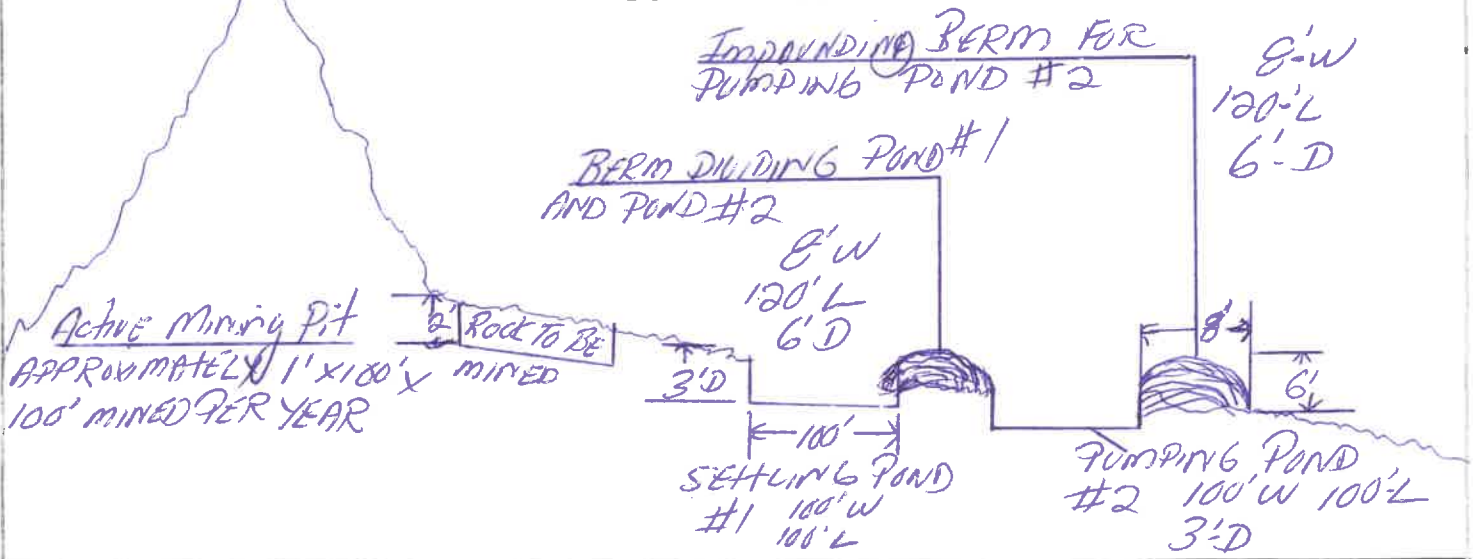 IMPOUNDING BERM FOR
PUMPING POND #2
8'-W
120'-L
6'-D
BERM DIVIDING POND #1
AND POND #2
8'W
120'L
6'D
Active Mining Pit
APPROXIMATELY 1'X100'X
100' MINED PER YEAR
2'
ROCK TO BE
MINED
3'D
100'
SETTLING POND
#1 100'W
100'L
8'
6'
PUMPING POND
#2 100'W 100'-L
3'-D